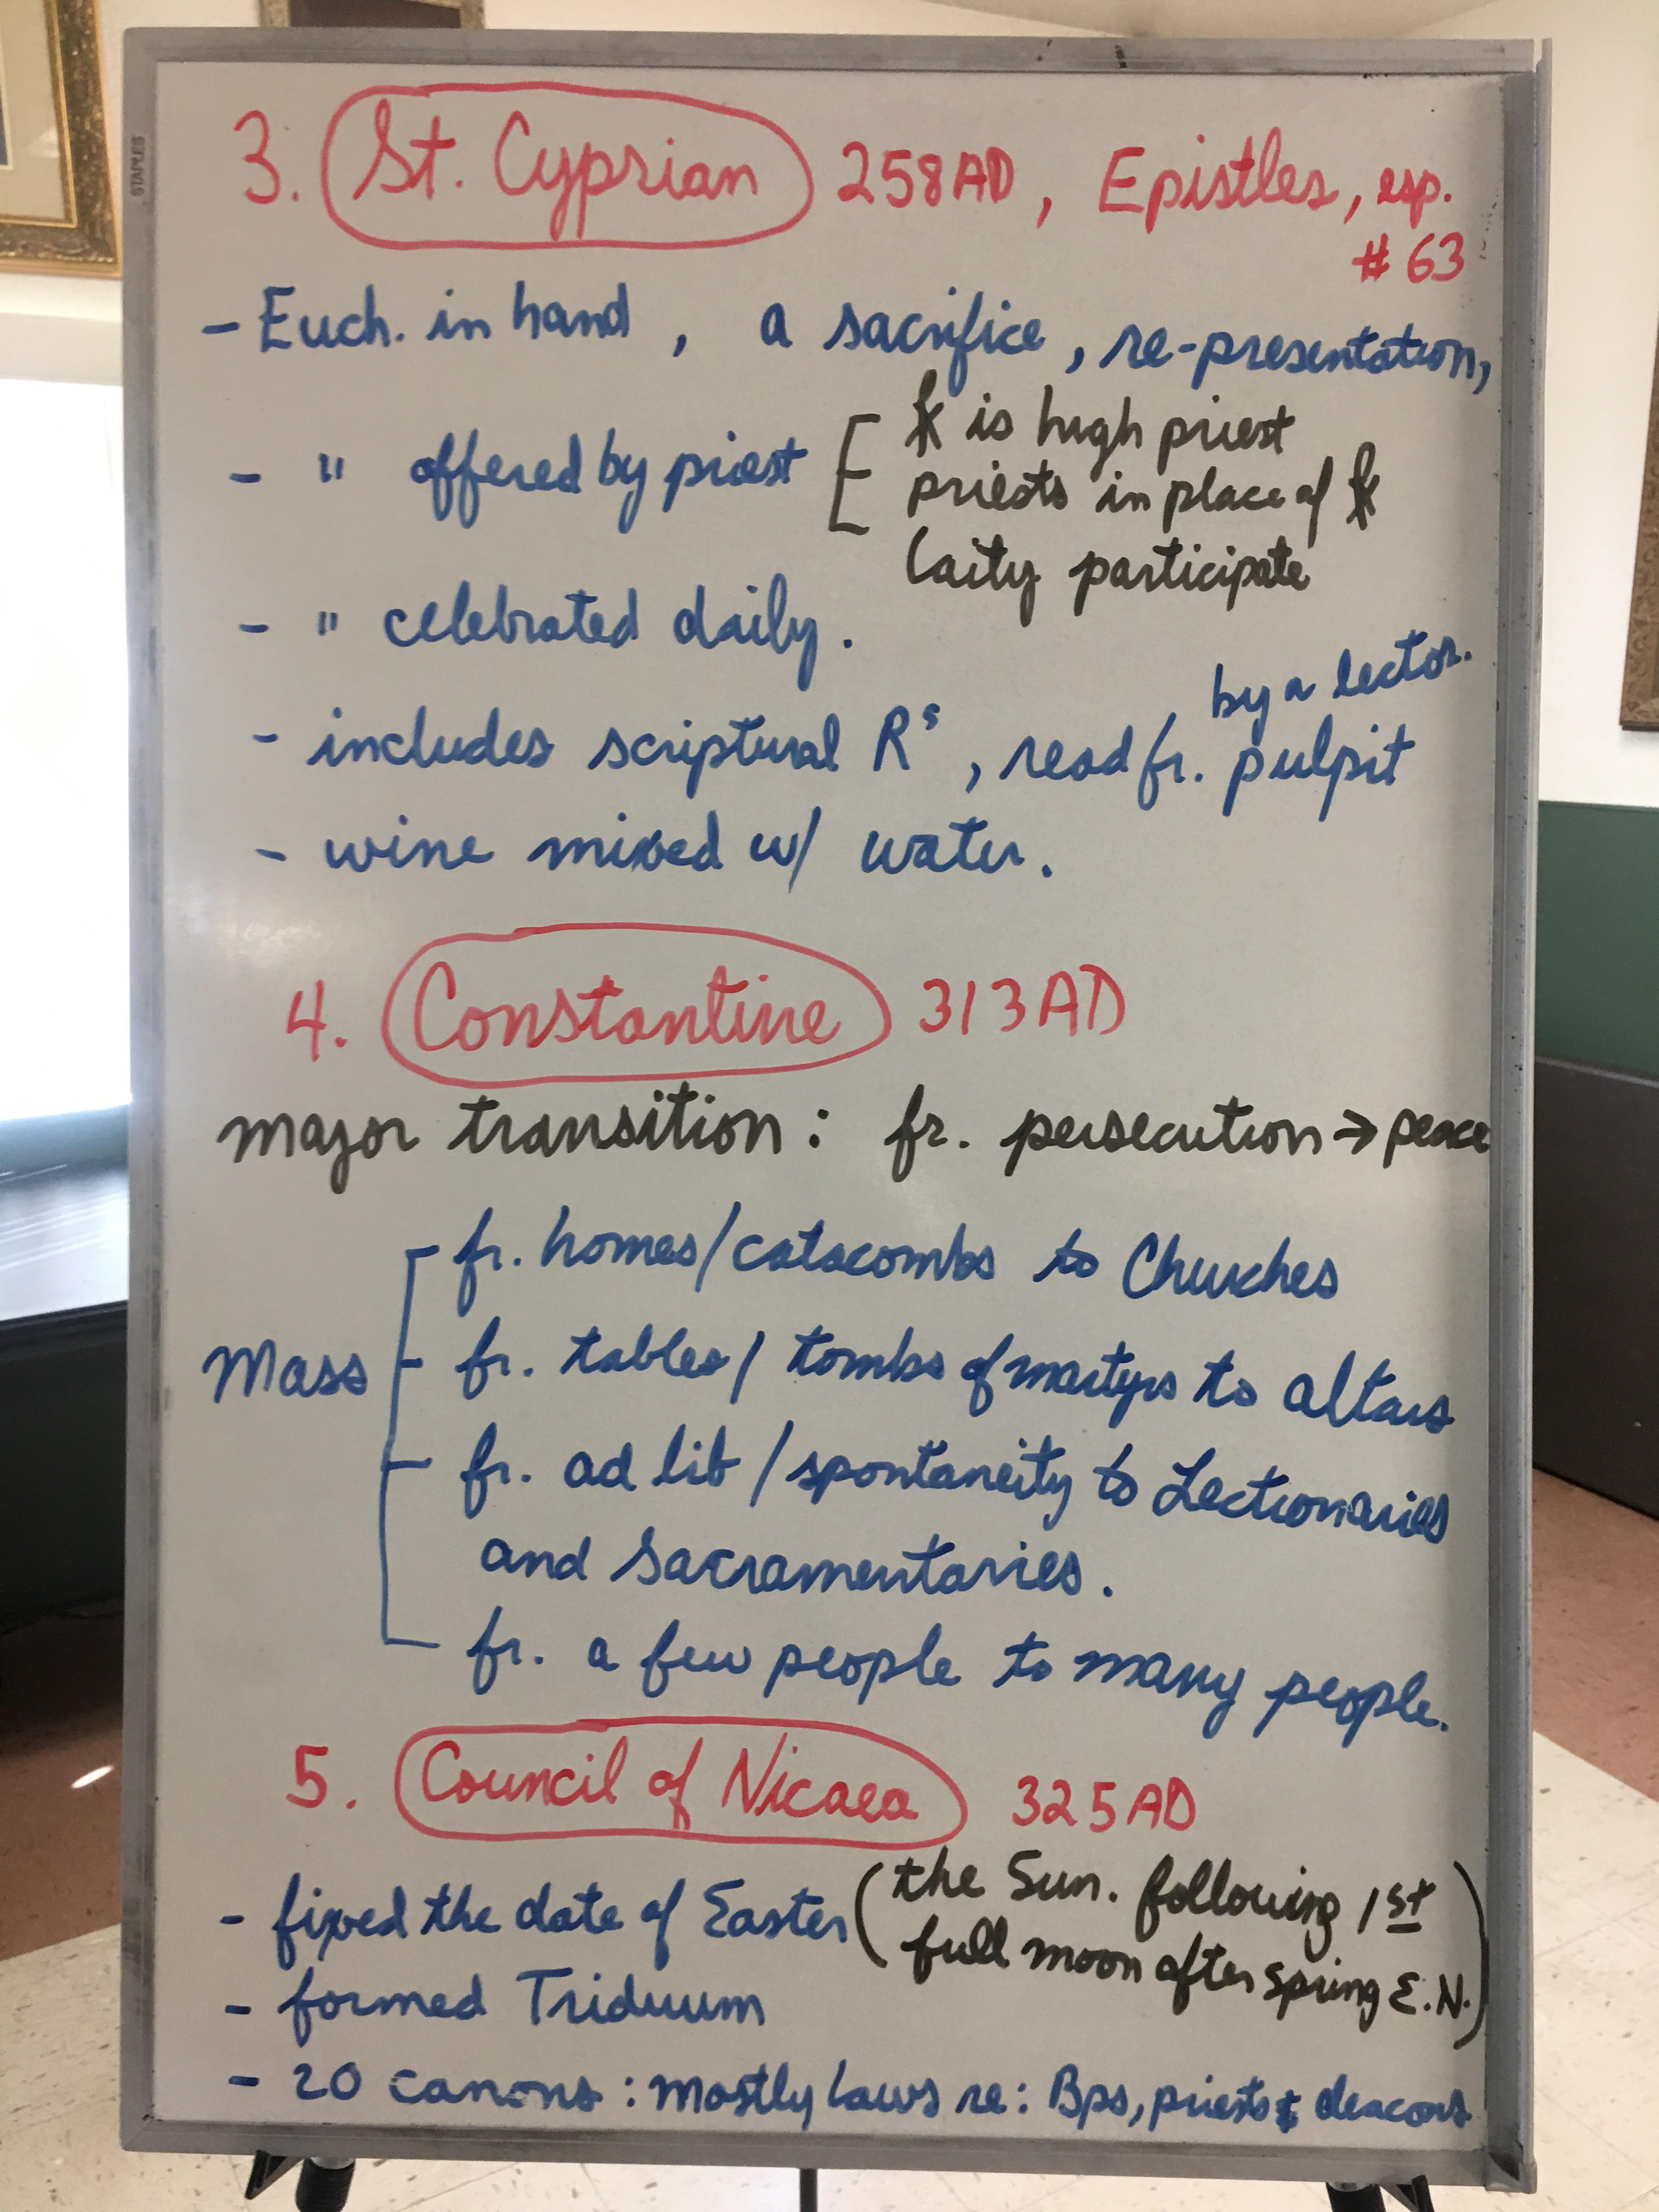 STAPLES
3. St. Cyprian 258AD, Epistles, esp.
# 63
- Euch. in hand, a sacrifice, re-presentation,
- " offered by priest [ is high priest
priests in place of
laity participate
- " celebrated daily.
by a lector.
- includes scriptural Rs, read fr. pulpit
- wine mixed w/ water.
4. Constantine 313AD
major transition: fr. persecution → peace
fr. homes/catacombs to Churches
Mass - fr. tables/tombs of martyrs to altars
- fr. ad lib/spontaneity to Lectionaries
and Sacramentaries.
fr. a few people to many people.
5. Council of Nicaea 325AD
- fixed the date of Easter (the Sun. following 1st
full moon after spring E.N.)
- formed Triduum
- 20 canons: mostly laws re: Bps, priests & deacons